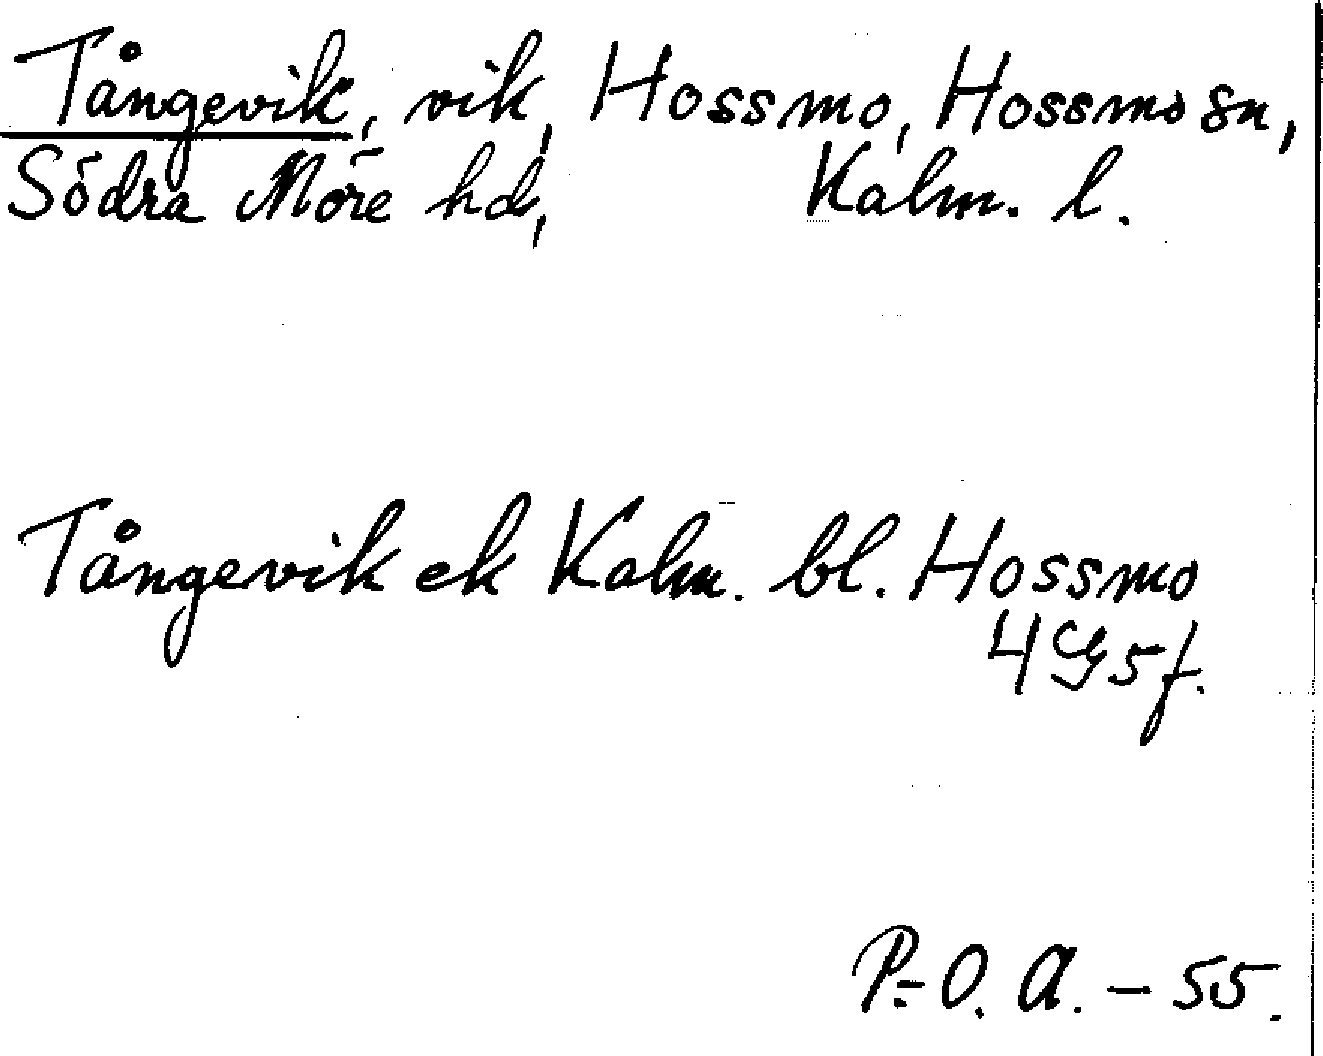 Tångevik, vik, Hossmo, Hossmo sn,
Södra Möre hd, Kalm. l.
Tångevik ek Kalm. bl. Hossmo
4G5f.
P.-O. A. – 55.